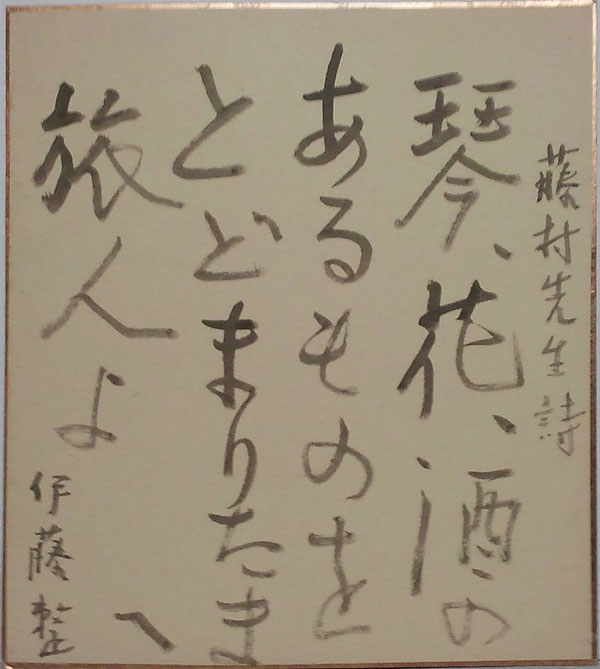 藤村先生詩
琴、花、酒の
あるものを
とどまりたま
へ
旅人よ
伊藤整